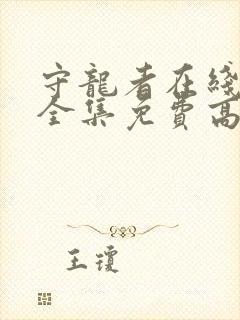 守龍者在綫
全集免費高
王瓊